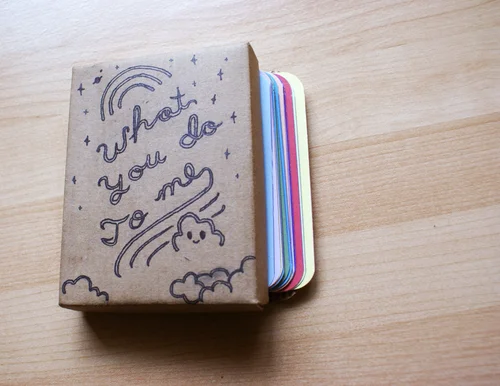 What
You do
To me